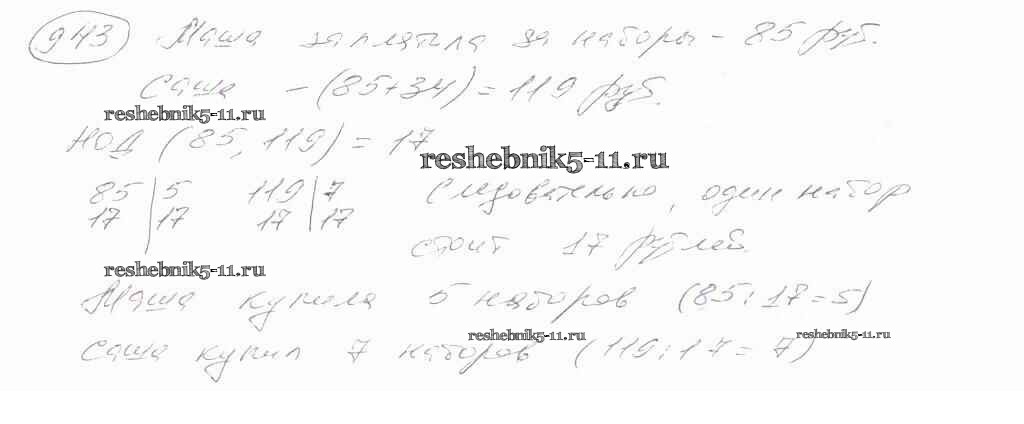 943 Маша заплатила за наборы - 85 руб.
Саша - (85+34) = 119 руб.
reshebnik5-11.ru
НОД (85, 119) = 17
reshebnik5-11.ru
85 | 5 119 | 7 Следовательно, один набор
17 | 17 17 | 17
стоит 17 рублей.
reshebnik5-11.ru
Маша купила 5 наборов (85:17=5)
reshebnik5-11.ru reshebnik5-11.ru
Саша купил 7 наборов (119:17=7)